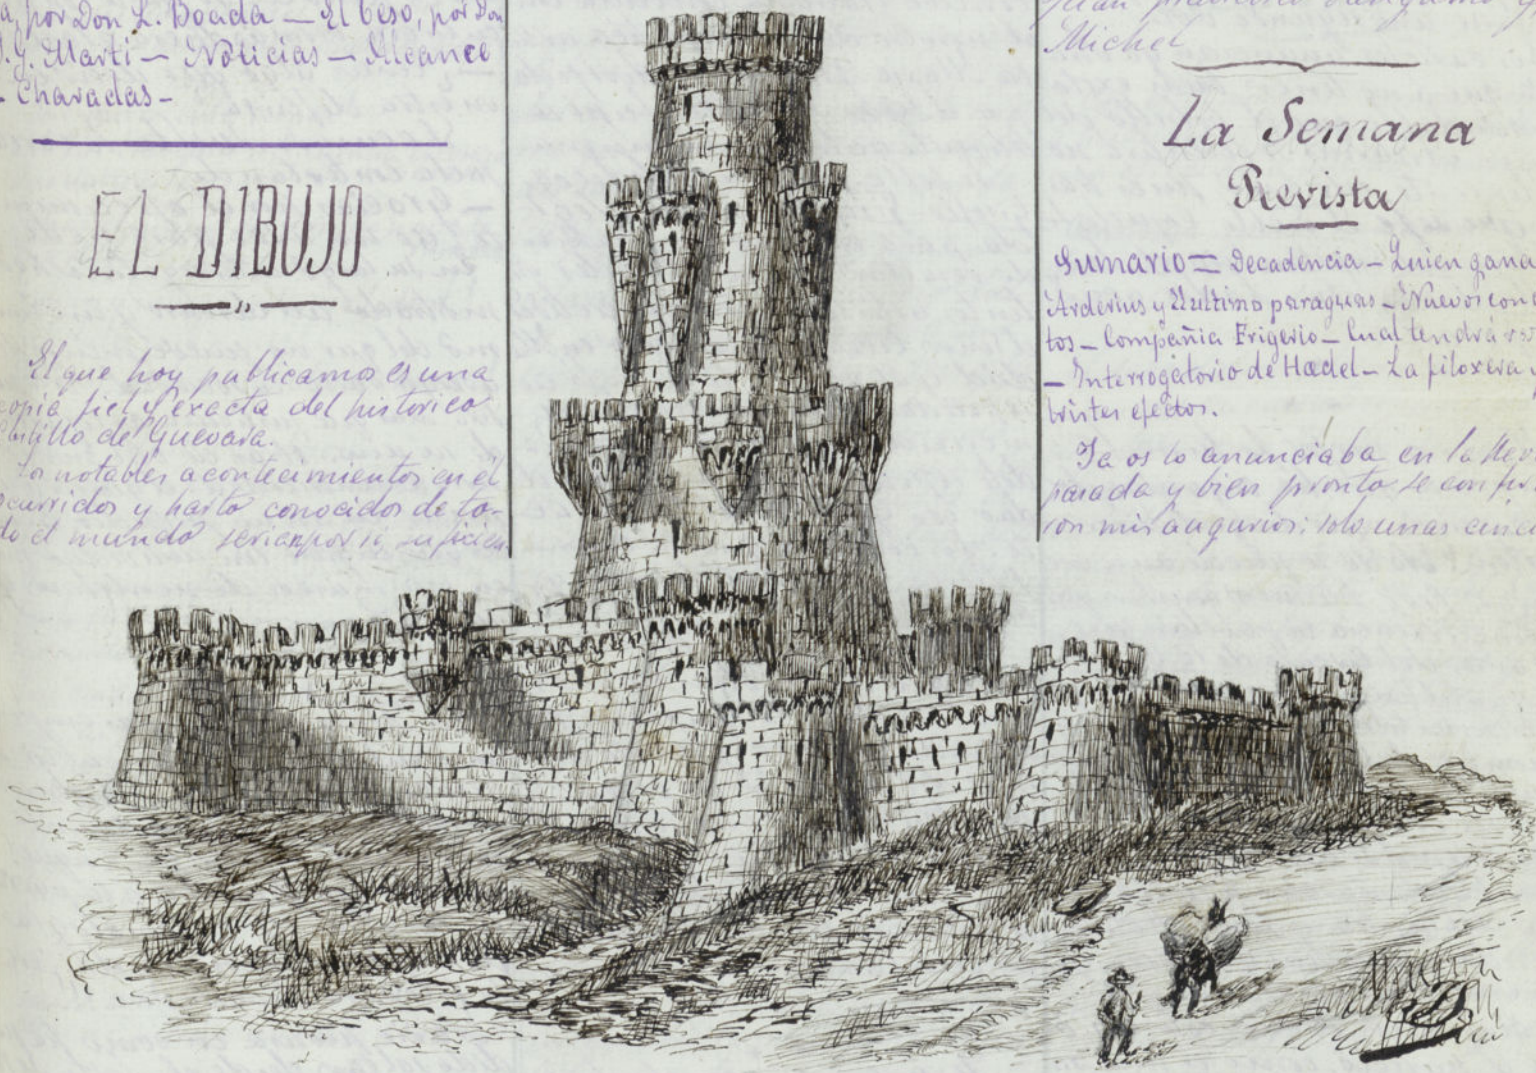 por Don L. Boada — El beso, por Don
J. Marti — Noticias — Alcance
- Charadas -
EL DIBUJO
El que hoy publicamos es una
copia fiel y exacta del historico
Castillo de Guevara.
Los notables acontecimientos en el
ocurridos y harto conocidos de to-
do el mundo serian por si suficien
Michel
La Semana
Revista
Sumario = Decadencia - Quien gana
Arderius y El ultimo paraguas - Nuevos con
tos - Compañia Frigerio - Cual tendrá
- Interrogatorio de Hœdel - La filoxera y
tristes efectos.
Ya os lo anunciaba en la
pasada y bien pronto se
ron mis augurios: solo unas